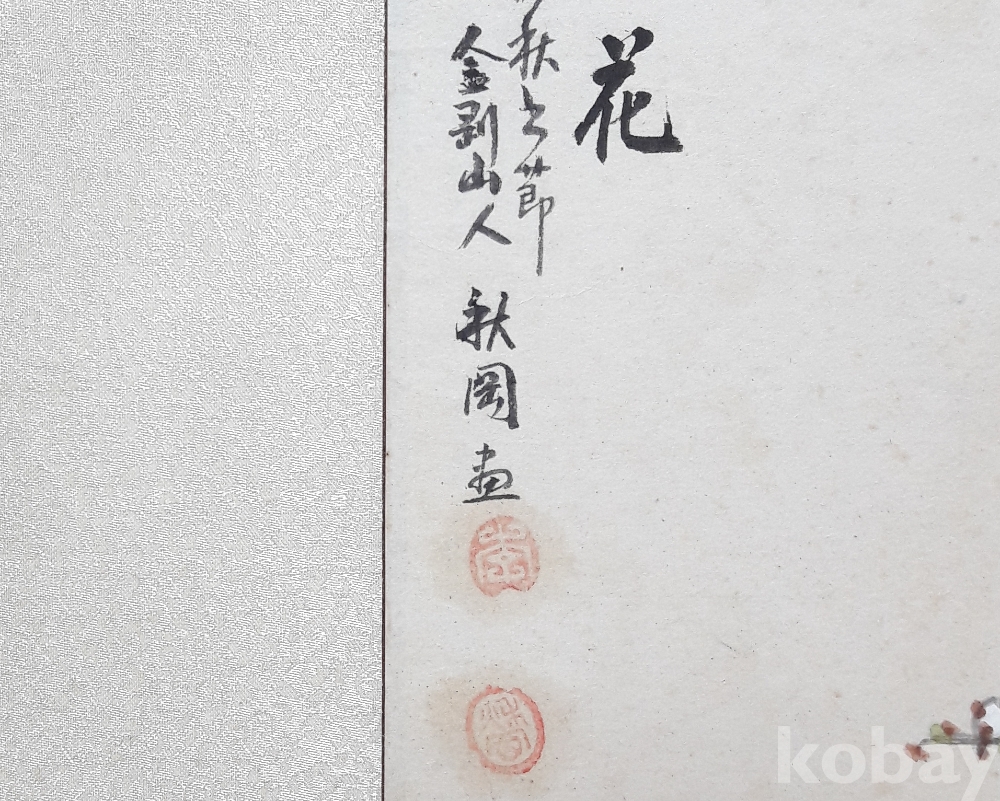 花
秋之節
金剛山人 秋岡画
kobay